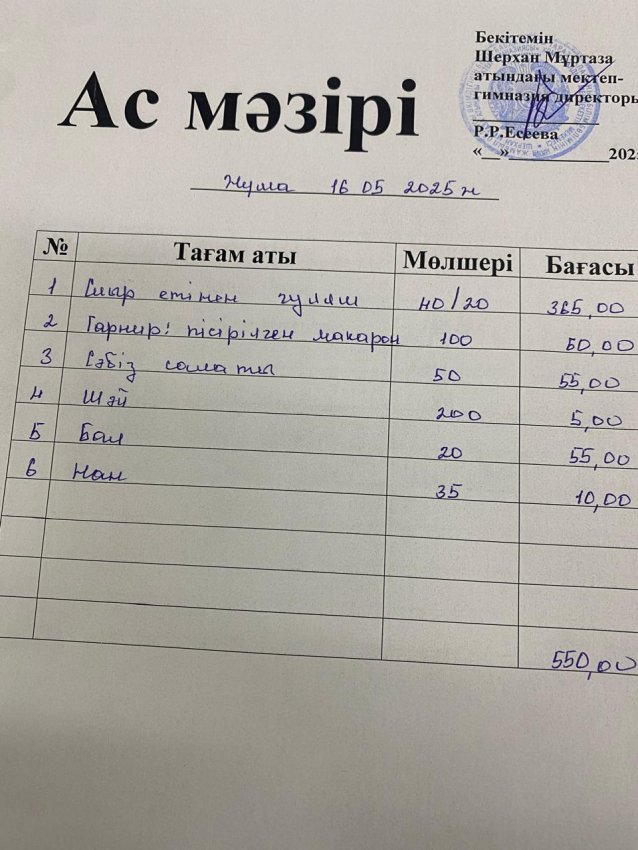 Бекітемін
Шерхан Мұртаза
атындағы мектеп-
гимназия директоры
Р.Р.Есеева
«__»____________202
Ас мәзірі
Жұма 16 05 2025 ж
№ Тағам аты Мөлшері Бағасы
1 Сиыр етінен гуляш 40/20 365,00
2 Гарнир: пісірілген макарон 100 60,00
3 Сәбіз салаты 50 55,00
4 Шәй 200 5,00
5 Бал 20 55,00
6 Нан 35 10,00
550,00